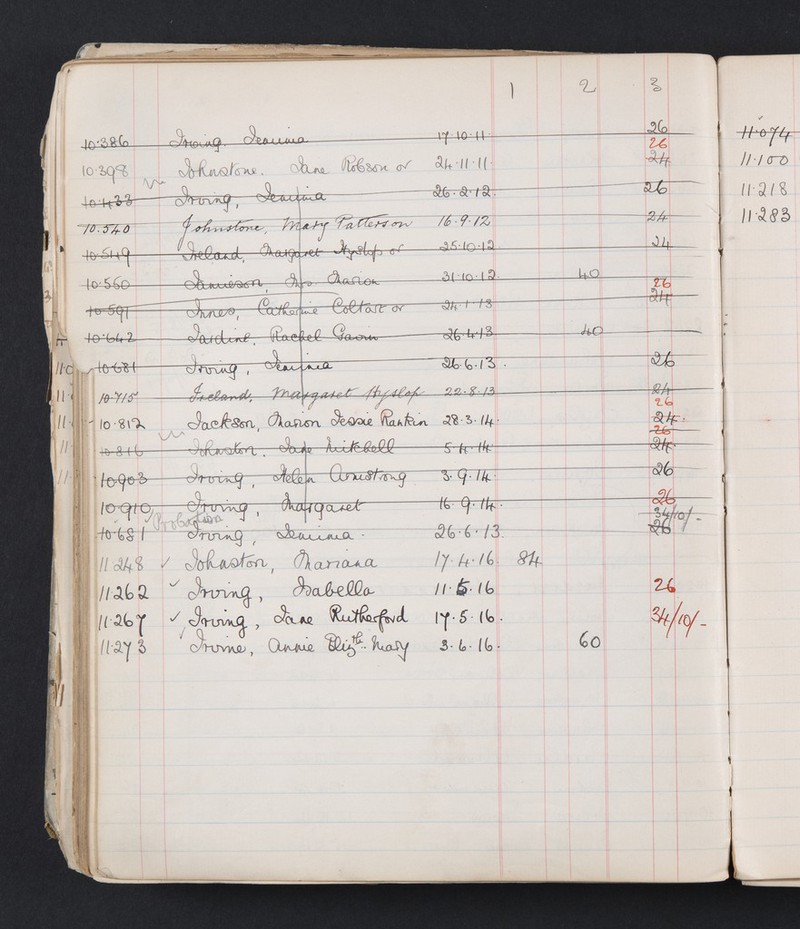 1 2 3
10·386 Irving. Jemima 17·10·11 26
26
10·398 Johnstone. Jane Robson or 24·11·11 24
10·433 Irving, Jemima 26·2·12 26
10.540 Johnstone, Mary Patterson 16·9·12 24
10·549 Ireland, Margaret Hyslop or 25·10·12 24
10·560 Jamieson, Mrs Marion 31·10·12 40
26
10·591 Innes, Catherine Coltart or 24·1·13 24
10·642 Jardine, Rachel Gavin 26·4·13 40
10·681 Irving, Jemima 26·6·13. 26
10·715 Ireland, Margaret Hyslop 22·8·13 24
26
10·812 Jackson, Marion Jessie Rankin 28·3·14· 24·
26
10·816 Johnston. Jane Mitchell 5·4·14· 24
10903 Irving, Helen Armstrong 3·9·14· 26
10910 Irving, Margaret 16·9·14· 26
Probation 34/10/-
10·681 Irving, Jemima. 26·6·13. 26
11248 ✓ Johnston, Mariana 17·4·16 84
11262 ✓ Irving, Isabella 11·5·16 26
11·267 ✓ Irving, Jane Rutherford 17·5·16. 34/10/-
11·273 Irvine, Annie Elizth. Mary 3·6·16· 60
11·074
11·100
11·218
11·283